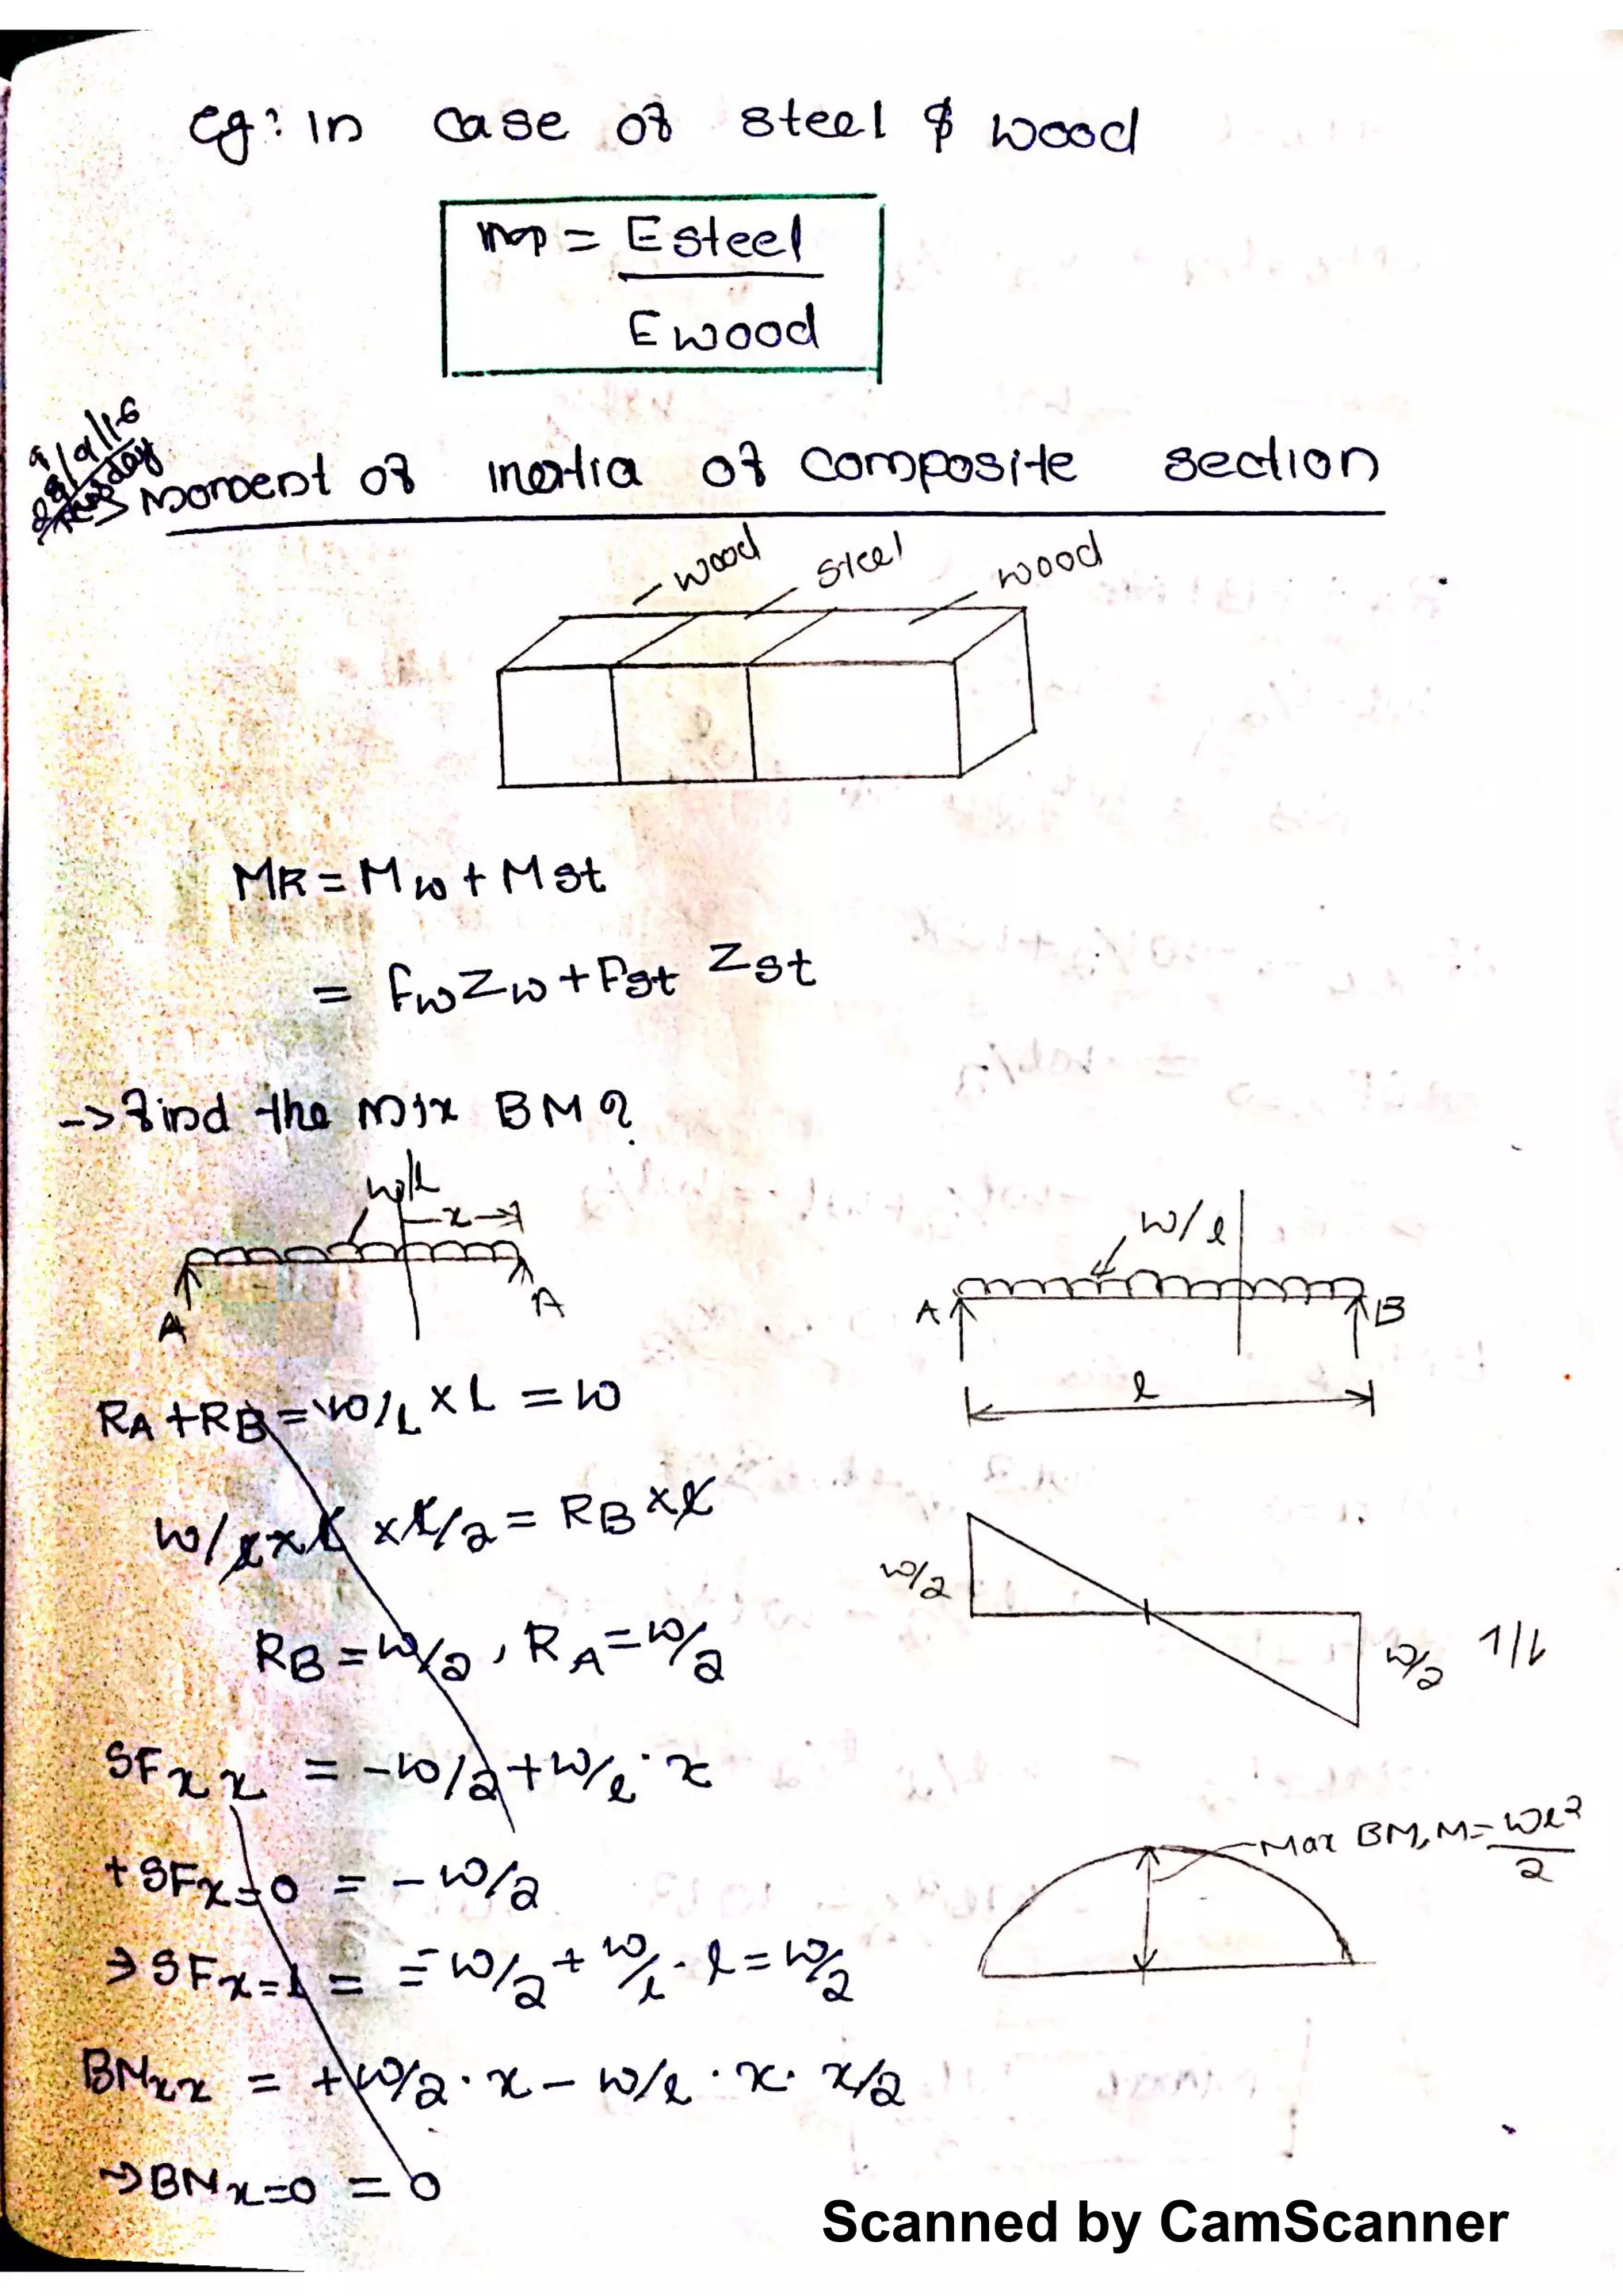 eg: in case of steel & wood
m = Esteel
Ewood
Moment of inertia of composite section
wood steel wood
MR = Mw + Mst
= fw Zw + Fst Zst
-> find the mix BM?
w/L
x
A A
w/l
A B
l
RA + RB = w/L × L = w
w/l × l × l/2 = RB × l
RB = w/2, RA = w/2
w/2
w/2 1/L
SFxx = -w/2 + w/l · x
Max BM, M = wl²
2
+ SFx=0 = - w/2
⇒ SFx=L = = -w/2 + w/l · l = w/2
BMxx = + w/2 · x - w/l · x · x/2
→ BMx=0 = 0
Scanned by CamScanner